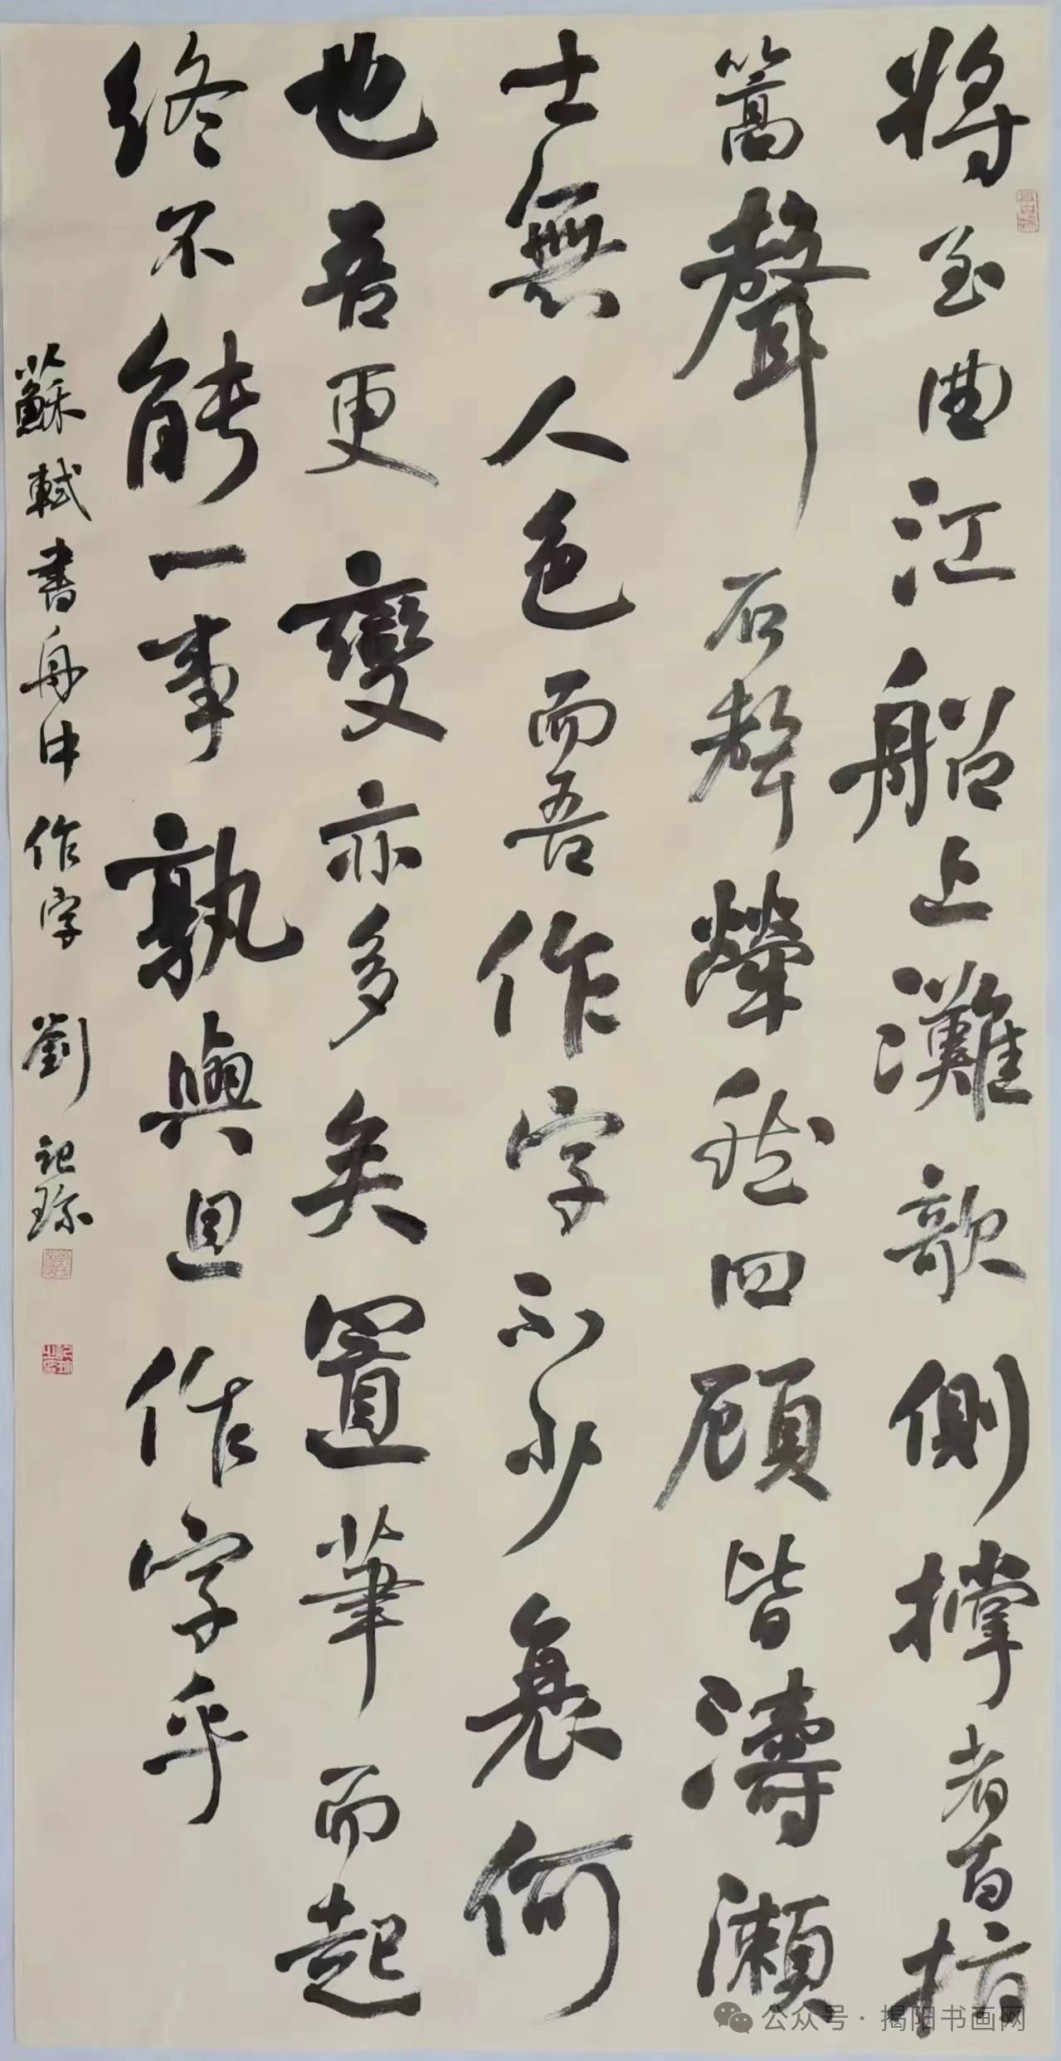 將至曲江船上灘歌側撐者百指
篙聲石聲犖然四顧皆濤瀨
士無人色而吾作字不少衰何
也吾更變亦多矣置筆而起
終不能一事孰與且作字乎
蘇軾書舟中作字 劉記琼
公众号·揭阳书画网